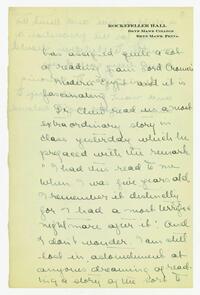 ROCKEFELLER HALL
BRYN MAWR COLLEGE
BRYN MAWR PENN'A.
has assigned quite a lot
of reading from Lord Cromer's
Modern Egypt and it is
fascinating.
Dr. Chew read us a most
extraordinary story in
class yesterday which he
prefaced with the remark
"I had this read to me
when I was five years old.
I remember it distinctly
for I had a most terrific
nightmare after it." And
I don't wonder. I am still
lost in astonishment at
anyone dreaming of read-
ing a story of the sort to